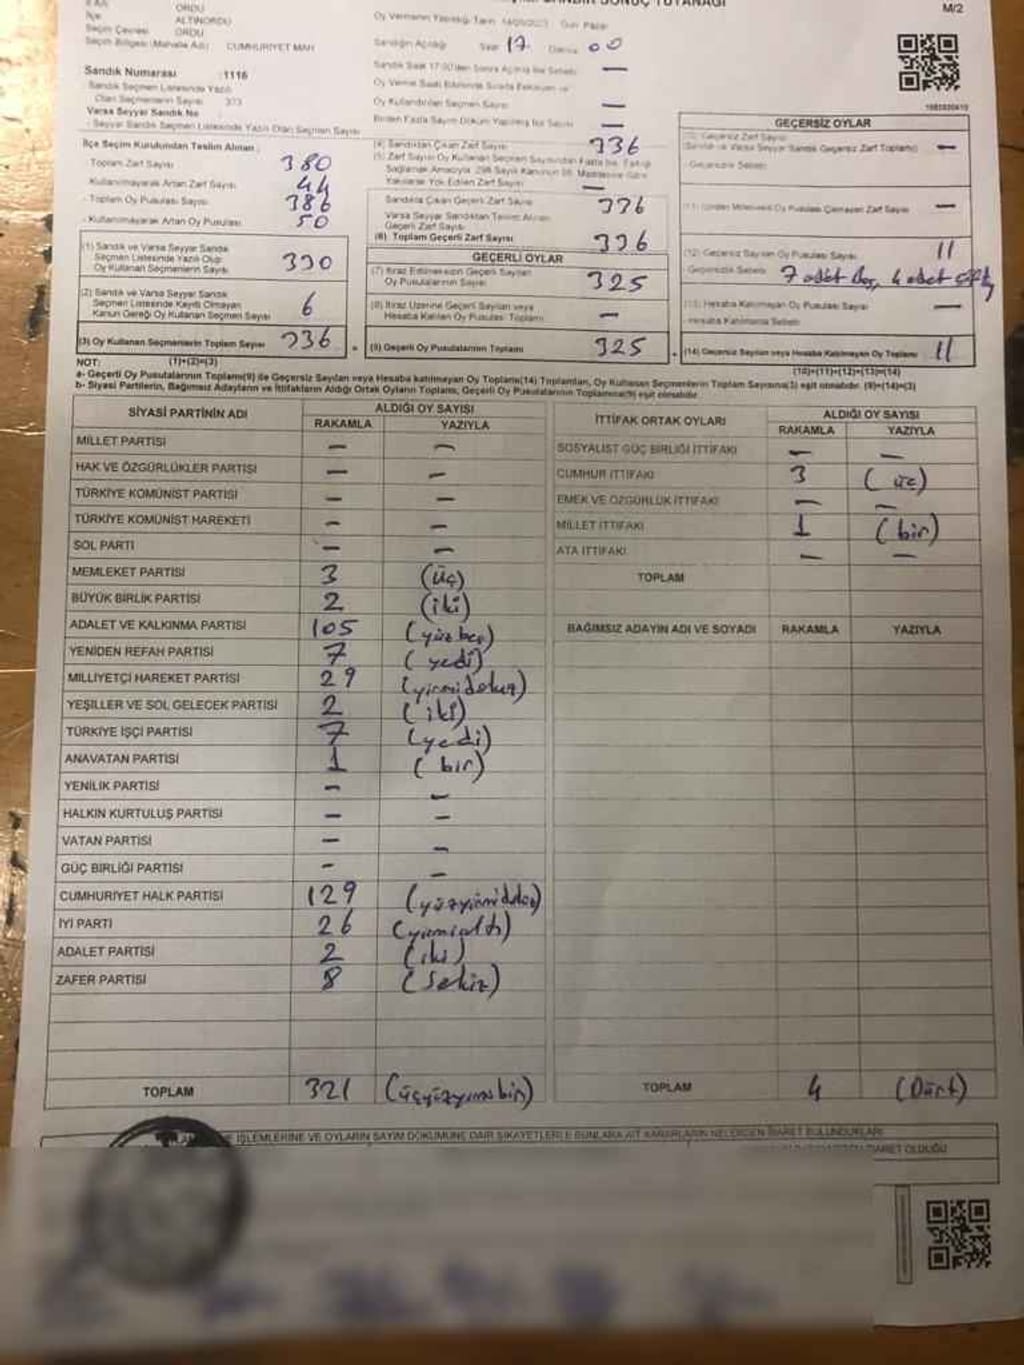 SONUÇ TUTANAĞI
M/2
ORDU
İlçe ALTINORDU
Seçim Çevresi ORDU
Seçim Bölgesi (Mahalle Adı) CUMHURİYET MAH
Sandık Numarası :1116
Sandık Seçmen Listesinde Yazılı
Olan Seçmenlerin Sayısı 373
Varsa Seyyar Sandık No
- Seyyar Sandık Seçmen Listesinde Yazılı Olan Seçmen Sayısı
Oy Vermenin Yapıldığı Tarih 14/05/2023 Gün Pazar
Sandığın Açıldığı Saat 17 Dakika 00
Sandık Saat 17:00'den Sonra Açılmış İse Sebebi —
Oy Kullandırılan Seçmen Sayısı —
Birden Fazla Sayım Döküm Yapılmış İse Sayısı —
İlçe Seçim Kurulundan Teslim Alınan :
- Toplam Zarf Sayısı 380
- Kullanılmayarak Artan Zarf Sayısı 44
- Toplam Oy Pusulası Sayısı 386
- Kullanılmayarak Artan Oy Pusulası 50
(1) Sandık ve Varsa Seyyar Sandık
Seçmen Listesinde Yazılı Olup
Oy Kullanan Seçmenlerin Sayısı 330
(2) Sandık ve Varsa Seyyar Sandık
Seçmen Listesinde Kayıtlı Olmayan
Kanun Gereği Oy Kullanan Seçmen Sayısı 6
(3) Oy Kullanan Seçmenlerin Toplam Sayısı 336
(1)+(2)=(3)
(4) Sandıktan Çıkan Zarf Sayısı 336
(5) Zarf Sayısı Oy Kullanan Seçmen Sayısından Fazla İse, Eşitliği
Sağlamak Amacıyla, 298 Sayılı Kanunun 98. Maddesine Göre
Yakılarak Yok Edilen Zarf Sayısı —
Sandıkta Çıkan Geçerli Zarf Sayısı 336
Varsa Seyyar Sandıktan Teslim Alınan
Geçerli Zarf Sayısı
(6) Toplam Geçerli Zarf Sayısı 336
GEÇERLİ OYLAR
(7) İtiraz Edilmeksizin Geçerli Sayılan
Oy Pusulalarının Sayısı 325
(8) İtiraz Üzerine Geçerli Sayılan veya
Hesaba Katılan Oy Pusulası Toplamı —
(9) Geçerli Oy Pusulalarının Toplamı 325
GEÇERSİZ OYLAR
(10) Geçersiz Zarf Sayısı
(Sandık ve Varsa Seyyar Sandık Geçersiz Zarf Toplamı) —
-Geçersizlik Sebebi
—
(12) Geçersiz Sayılan Oy Pusulası Sayısı 11
-Geçersizlik Sebebi 7 adet boş, 4 adet
(13) Hesaba Katılmayan Oy Pusulası Sayısı —
-Hesaba Katılmama Sebebi
(14) Geçersiz Sayılan veya Hesaba Katılmayan Oy Toplamı 11
(10)+(11)+(12)+(13)=(14)
NOT:
a- Geçerli Oy Pusulalarının Toplamı(9) ile Geçersiz Sayılan veya Hesaba katılmayan Oy Toplamı(14) Toplamları, Oy Kullanan Seçmenlerin Toplam Sayısına(3) eşit olmalıdır. (9)+(14)=(3)
b- Siyasi Partilerin, Bağımsız Adayların ve İttifakların Aldığı Ortak Oyların Toplamı, Geçerli Oy Pusulalarının Toplamına(9) eşit olmalıdır.
SİYASİ PARTİNİN ADI ALDIĞI OY SAYISI
RAKAMLA YAZIYLA
MİLLET PARTİSİ — —
HAK VE ÖZGÜRLÜKLER PARTİSİ — —
TÜRKİYE KOMÜNİST PARTİSİ — —
TÜRKİYE KOMÜNİST HAREKETİ — —
SOL PARTİ — —
MEMLEKET PARTİSİ 3 (üç)
BÜYÜK BİRLİK PARTİSİ 2 (iki)
ADALET VE KALKINMA PARTİSİ 105 (yüzbeş)
YENİDEN REFAH PARTİSİ 7 (yedi)
MİLLİYETÇİ HAREKET PARTİSİ 29 (yirmidokuz)
YEŞİLLER VE SOL GELECEK PARTİSİ 2 (iki)
TÜRKİYE İŞÇİ PARTİSİ 7 (yedi)
ANAVATAN PARTİSİ 1 (bir)
YENİLİK PARTİSİ — —
HALKIN KURTULUŞ PARTİSİ — —
VATAN PARTİSİ — —
GÜÇ BİRLİĞİ PARTİSİ — —
CUMHURİYET HALK PARTİSİ 129 (yüzyirmidokuz)
İYİ PARTİ 26 (yirmialtı)
ADALET PARTİSİ 2 (iki)
ZAFER PARTİSİ 8 (sekiz)
TOPLAM 321 (üçyüzyirmibir)
İTTİFAK ORTAK OYLARI ALDIĞI OY SAYISI
RAKAMLA YAZIYLA
SOSYALİST GÜÇ BİRLİĞİ İTTİFAKI — —
CUMHUR İTTİFAKI 3 (üç)
EMEK VE ÖZGÜRLÜK İTTİFAKI — —
MİLLET İTTİFAKI 1 (bir)
ATA İTTİFAKI — —
TOPLAM
BAĞIMSIZ ADAYIN ADI VE SOYADI RAKAMLA YAZIYLA
TOPLAM 4 (Dört)
İŞLEMLERİNE VE OYLARIN SAYIM DÖKÜMÜNE DAİR ŞİKAYETLERLE BUNLARA AİT KARARLARIN NELERDEN İBARET BULUNDUKLARI
İBARET OLDUĞU